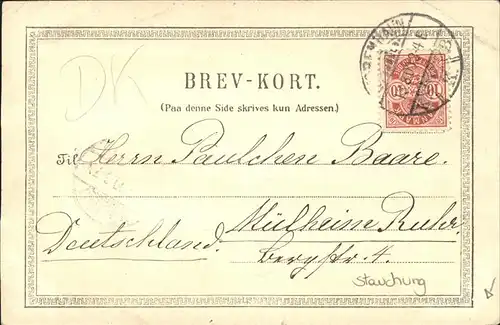 DK
BREV-KORT.
(Paa denne Side skrives kun Adressen.)
Til Herrn Paulchen Baare.
Mülheim Ruhr.
Deutschland. Bergstr. 4.
Stauchung